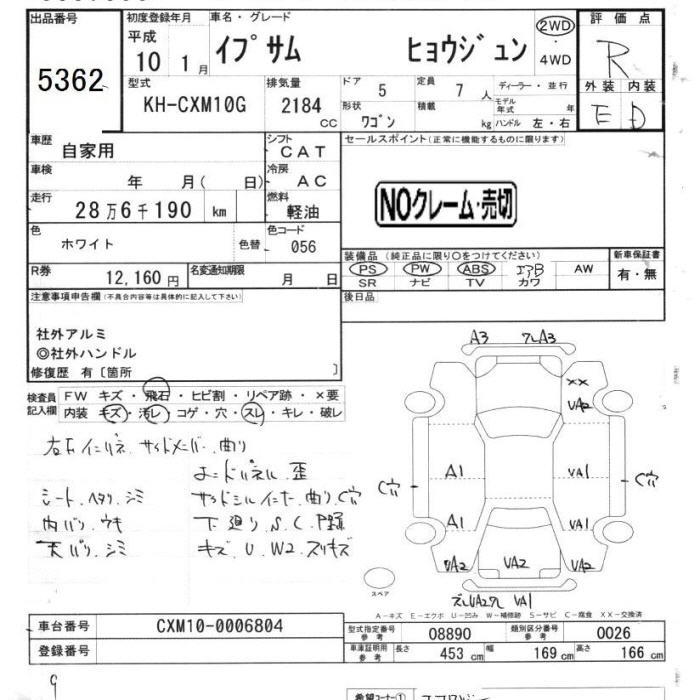 出品番号 初度登録年月 車名・グレード 評価点
5362
平成 10 1月 イプサム ヒョウジュン 2WD ・ 4WD R
型式 排気量 ドア 5 定員 7人 ディーラー・並行 外装 内装
KH-CXM10G 2184 CC 形状 ワゴン 積載 kg モデル年式 年 ハンドル 左・右 E D
車歴 自家用 シフト CAT セールスポイント(正常に機能するものに限ります)
車検 年 月( 日) 冷房 AC
走行 28万6千190 km 燃料 軽油 NOクレーム・売切
色 ホワイト 色替 色コード 056
装備品(純正品に限り○をつけてください) 新車保証書
R券 12,160円 名変通知期限 月 日 PS PW ABS エアB AW 有・無
SR ナビ TV カワ
注意事項申告欄(不具合内容等は具体的に記入して下さい) 後日品
社外アルミ
◎社外ハンドル
修復歴 有〔箇所 〕
検査員記入欄 FW キズ・飛石・ヒビ割・リペア跡・×要
内装 キズ・汚レ・コゲ・穴・スレ・キレ・破レ
左右インパネ.サイドメンバー.曲り
ロードパネル.歪
シート.ヘタリ.シミ サイドシルインナー.曲り C穴
内バリ.ウキ 下廻り.S.C.P跡
天バリ.シミ キズ.U.W2.スリキズ
A3 クレA3
×× VA2
C穴 A1 VA1 C穴
A1 VA1
VA2 VA2 VA2
ズレVA2クレ VA1
スペア
A-キズ E-エクボ U-凹み W-補修跡 S-サビ C-腐食 XX-交換済
車台番号 CXM10-0006804 型式指定番号参考 08890 類別区分番号参考 0026
登録番号 車庫証明用参考 長さ 453 cm 幅 169 cm 高さ 166 cm
9
希望コーナー①